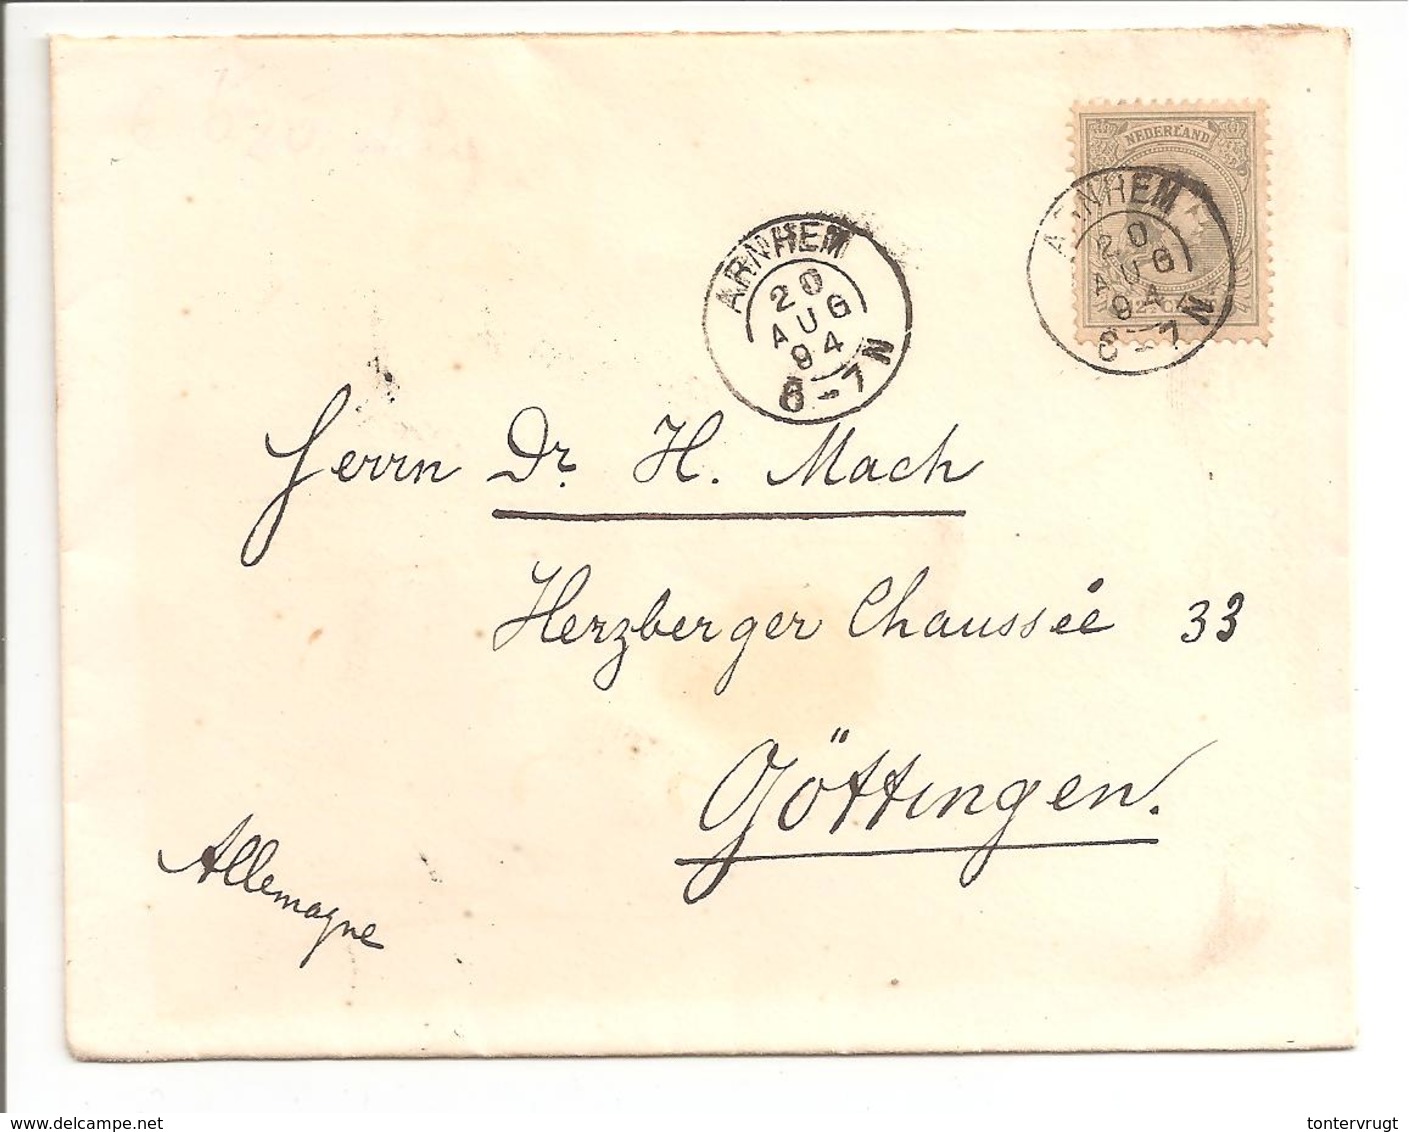 NEDERLAND
ARNHEM
20
AUG
94
6-7 N
ARNHEM
20
AUG
94
6-7 N
Herrn Dr. H. Mach
Herzberger Chaussée 33
Göttingen.
Allemagne
delcampe.net
tontervrugt